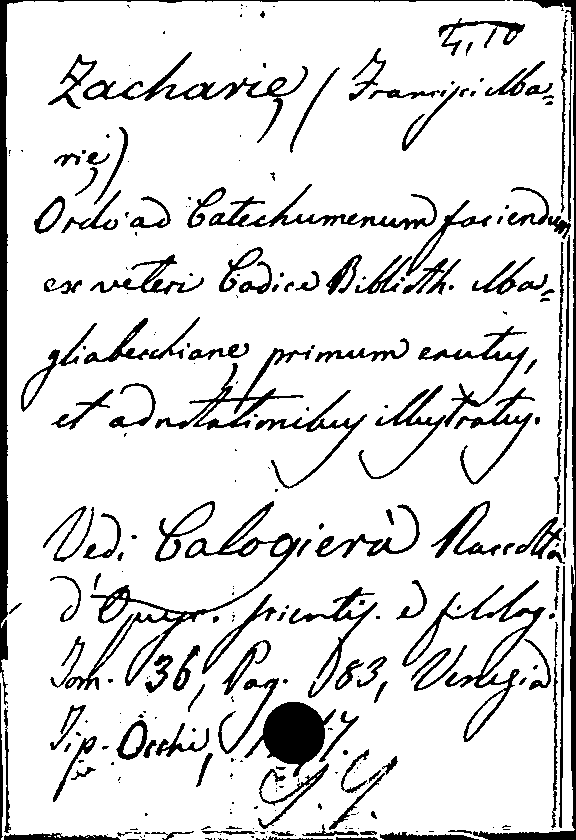 4,10
Zacharię (Francisci Ma=
rię)
Ordo ad Catechumenum faciendum
ex veteri Codice Biblioth. Ma=
gliabecchianę primum erutus,
et adnotationibus illustratus.
Vedi Calogierà Raccolta
d'Opusc. scientif. e filolog.
Tom. 36, Pag. 83, Venezia
Tip. Occhi,